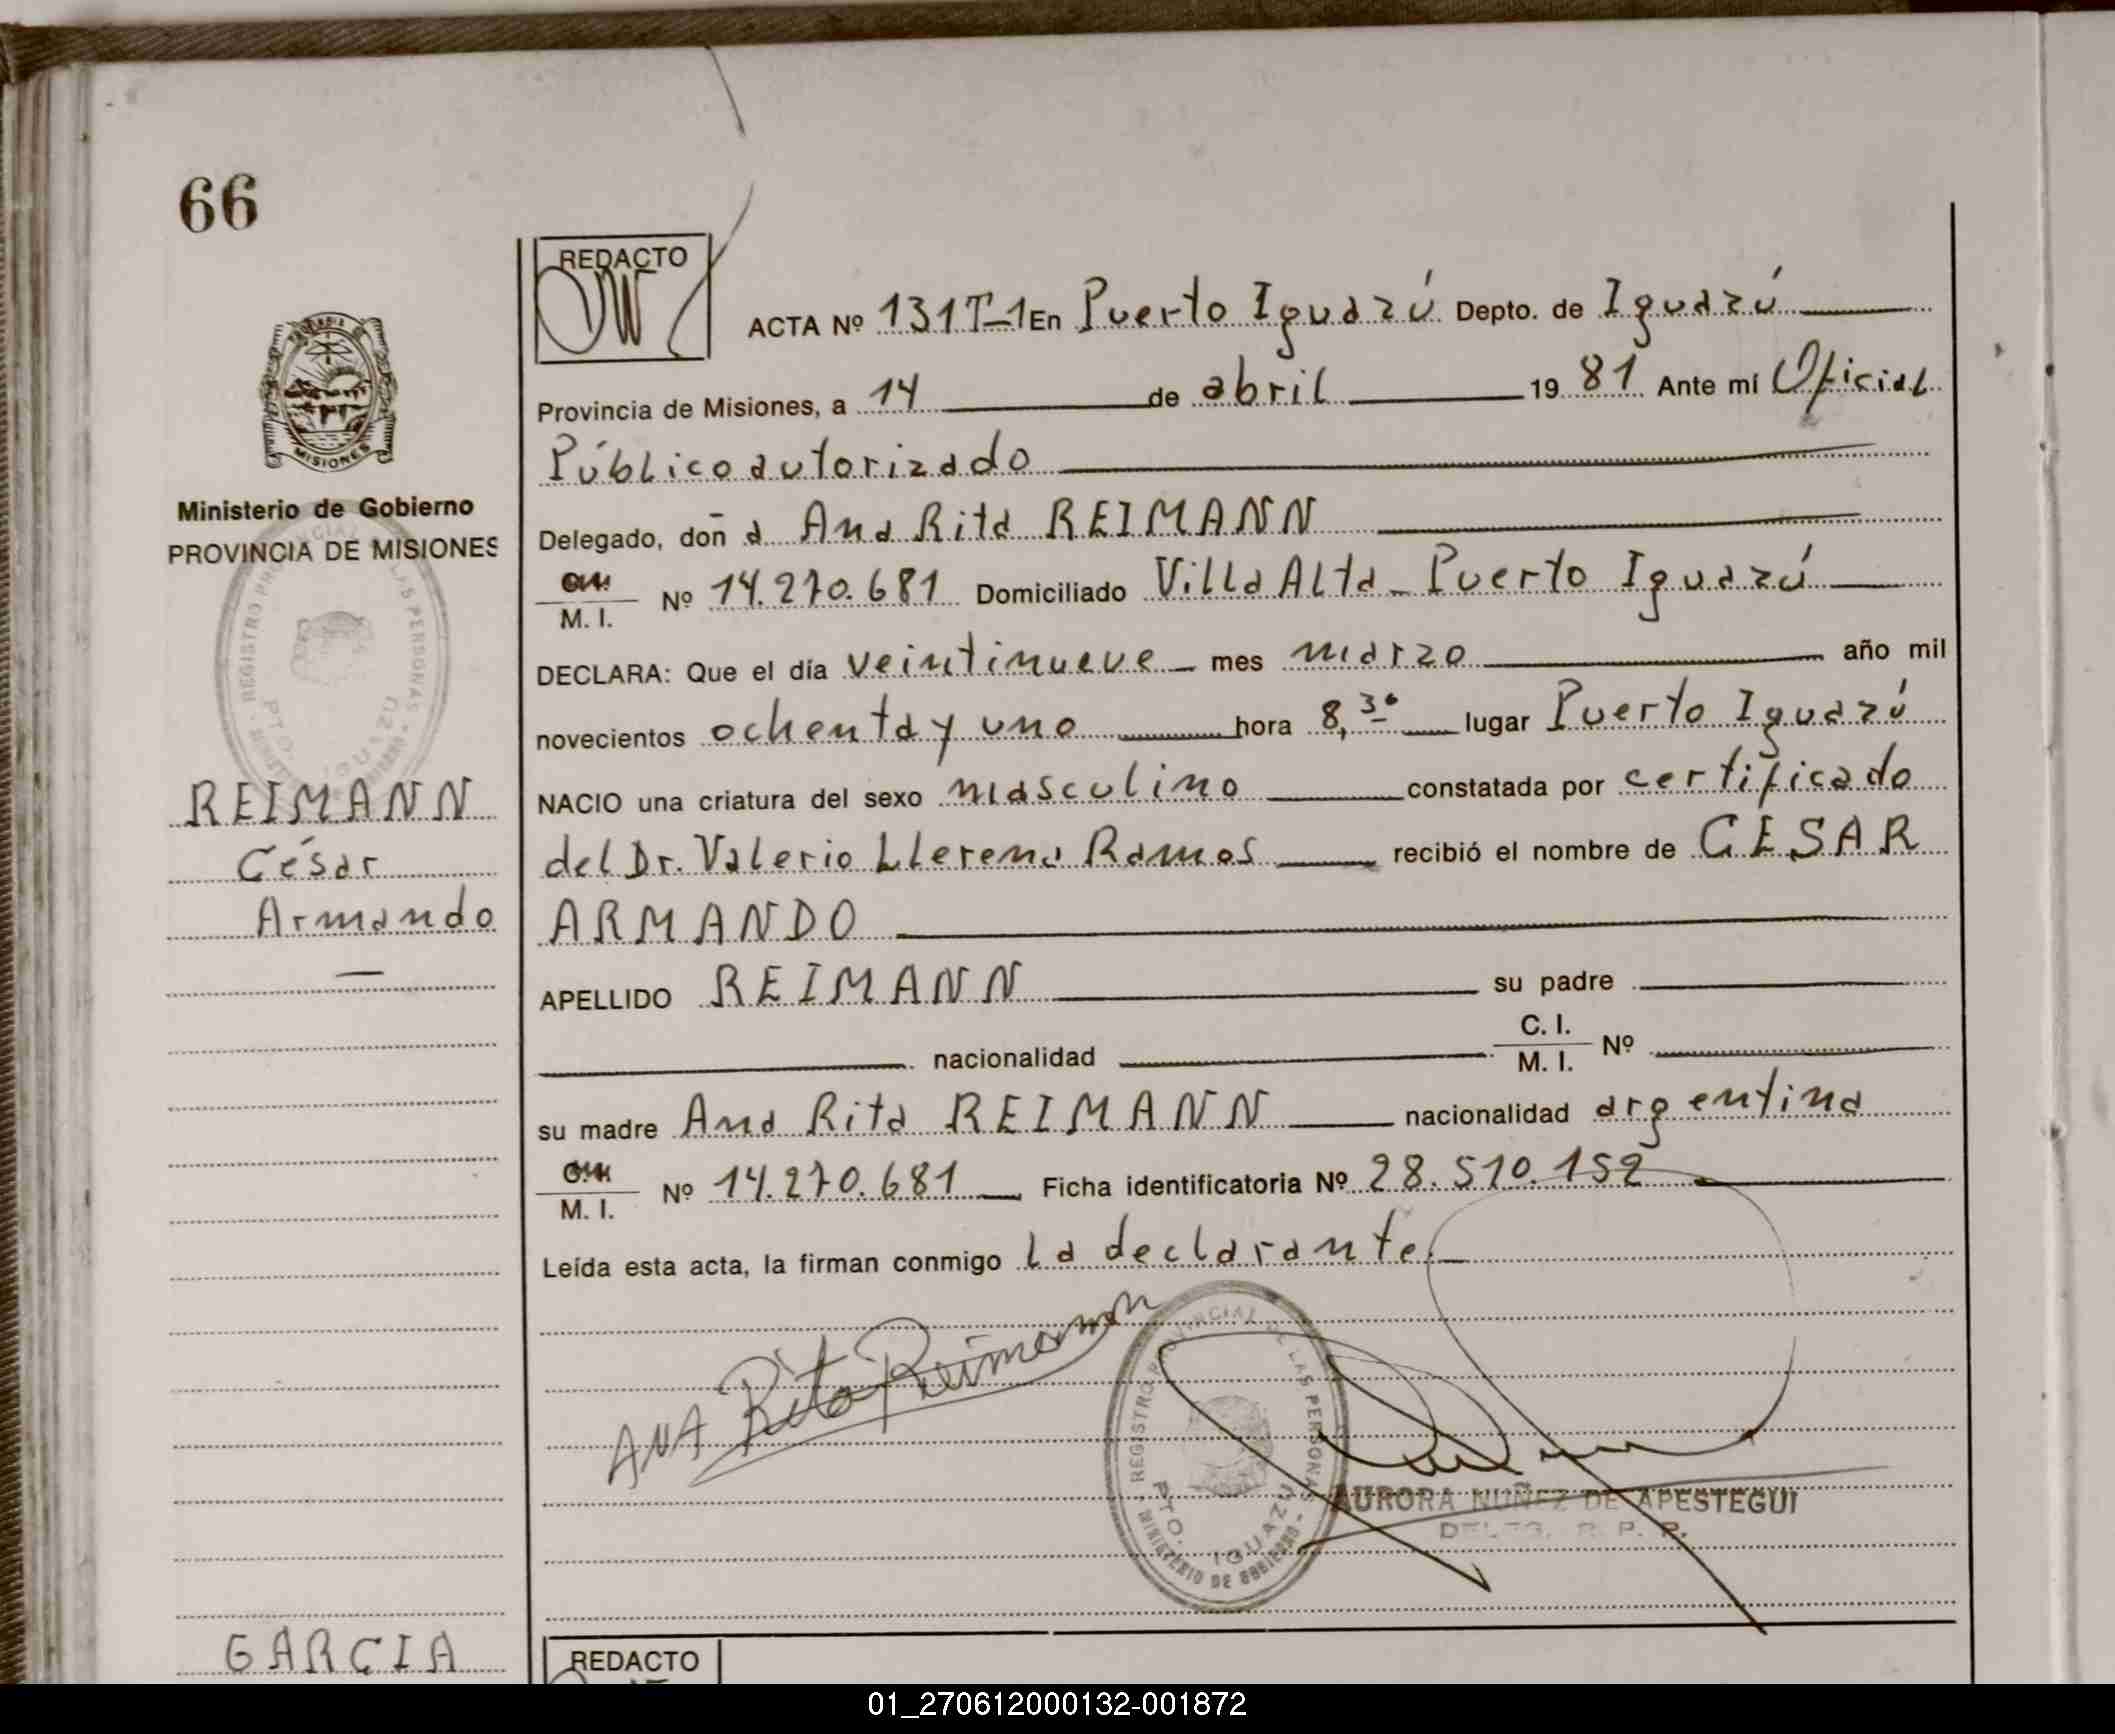 66
REDACTO
ACTA Nº 131T-1 En Puerto Iguazú Depto. de Iguazú
Provincia de Misiones, a 14 de abril 1981 Ante mí Oficial
Público autorizado
Delegado, doña Ana Rita REIMANN
M. I. Nº 14.270.681 Domiciliado Villa Alta - Puerto Iguazú
DECLARA: Que el día veintinueve mes marzo año mil
novecientos ochenta y uno hora 8,30 lugar Puerto Iguazú
NACIO una criatura del sexo masculino constatada por certificado
del Dr. Valerio Llerena Ramos recibió el nombre de CESAR
ARMANDO
APELLIDO REIMANN su padre
nacionalidad C. I. M. I. Nº
su madre Ana Rita REIMANN nacionalidad argentina
M. I. Nº 14.270.681 Ficha identificatoria Nº 28.510.152
Leída esta acta, la firman conmigo la declarante.
ANA Rita Reimann
REGISTRO PROVINCIAL DE LAS PERSONAS
PTO. IGUAZU
MINISTERIO DE GOBIERNO
AURORA NUÑEZ DE APESTEGUI
DELEG. R. P. P.
MISIONES
Ministerio de Gobierno
PROVINCIA DE MISIONES
REIMANN
César
Armando
GARCIA
REDACTO
01_270612000132-001872